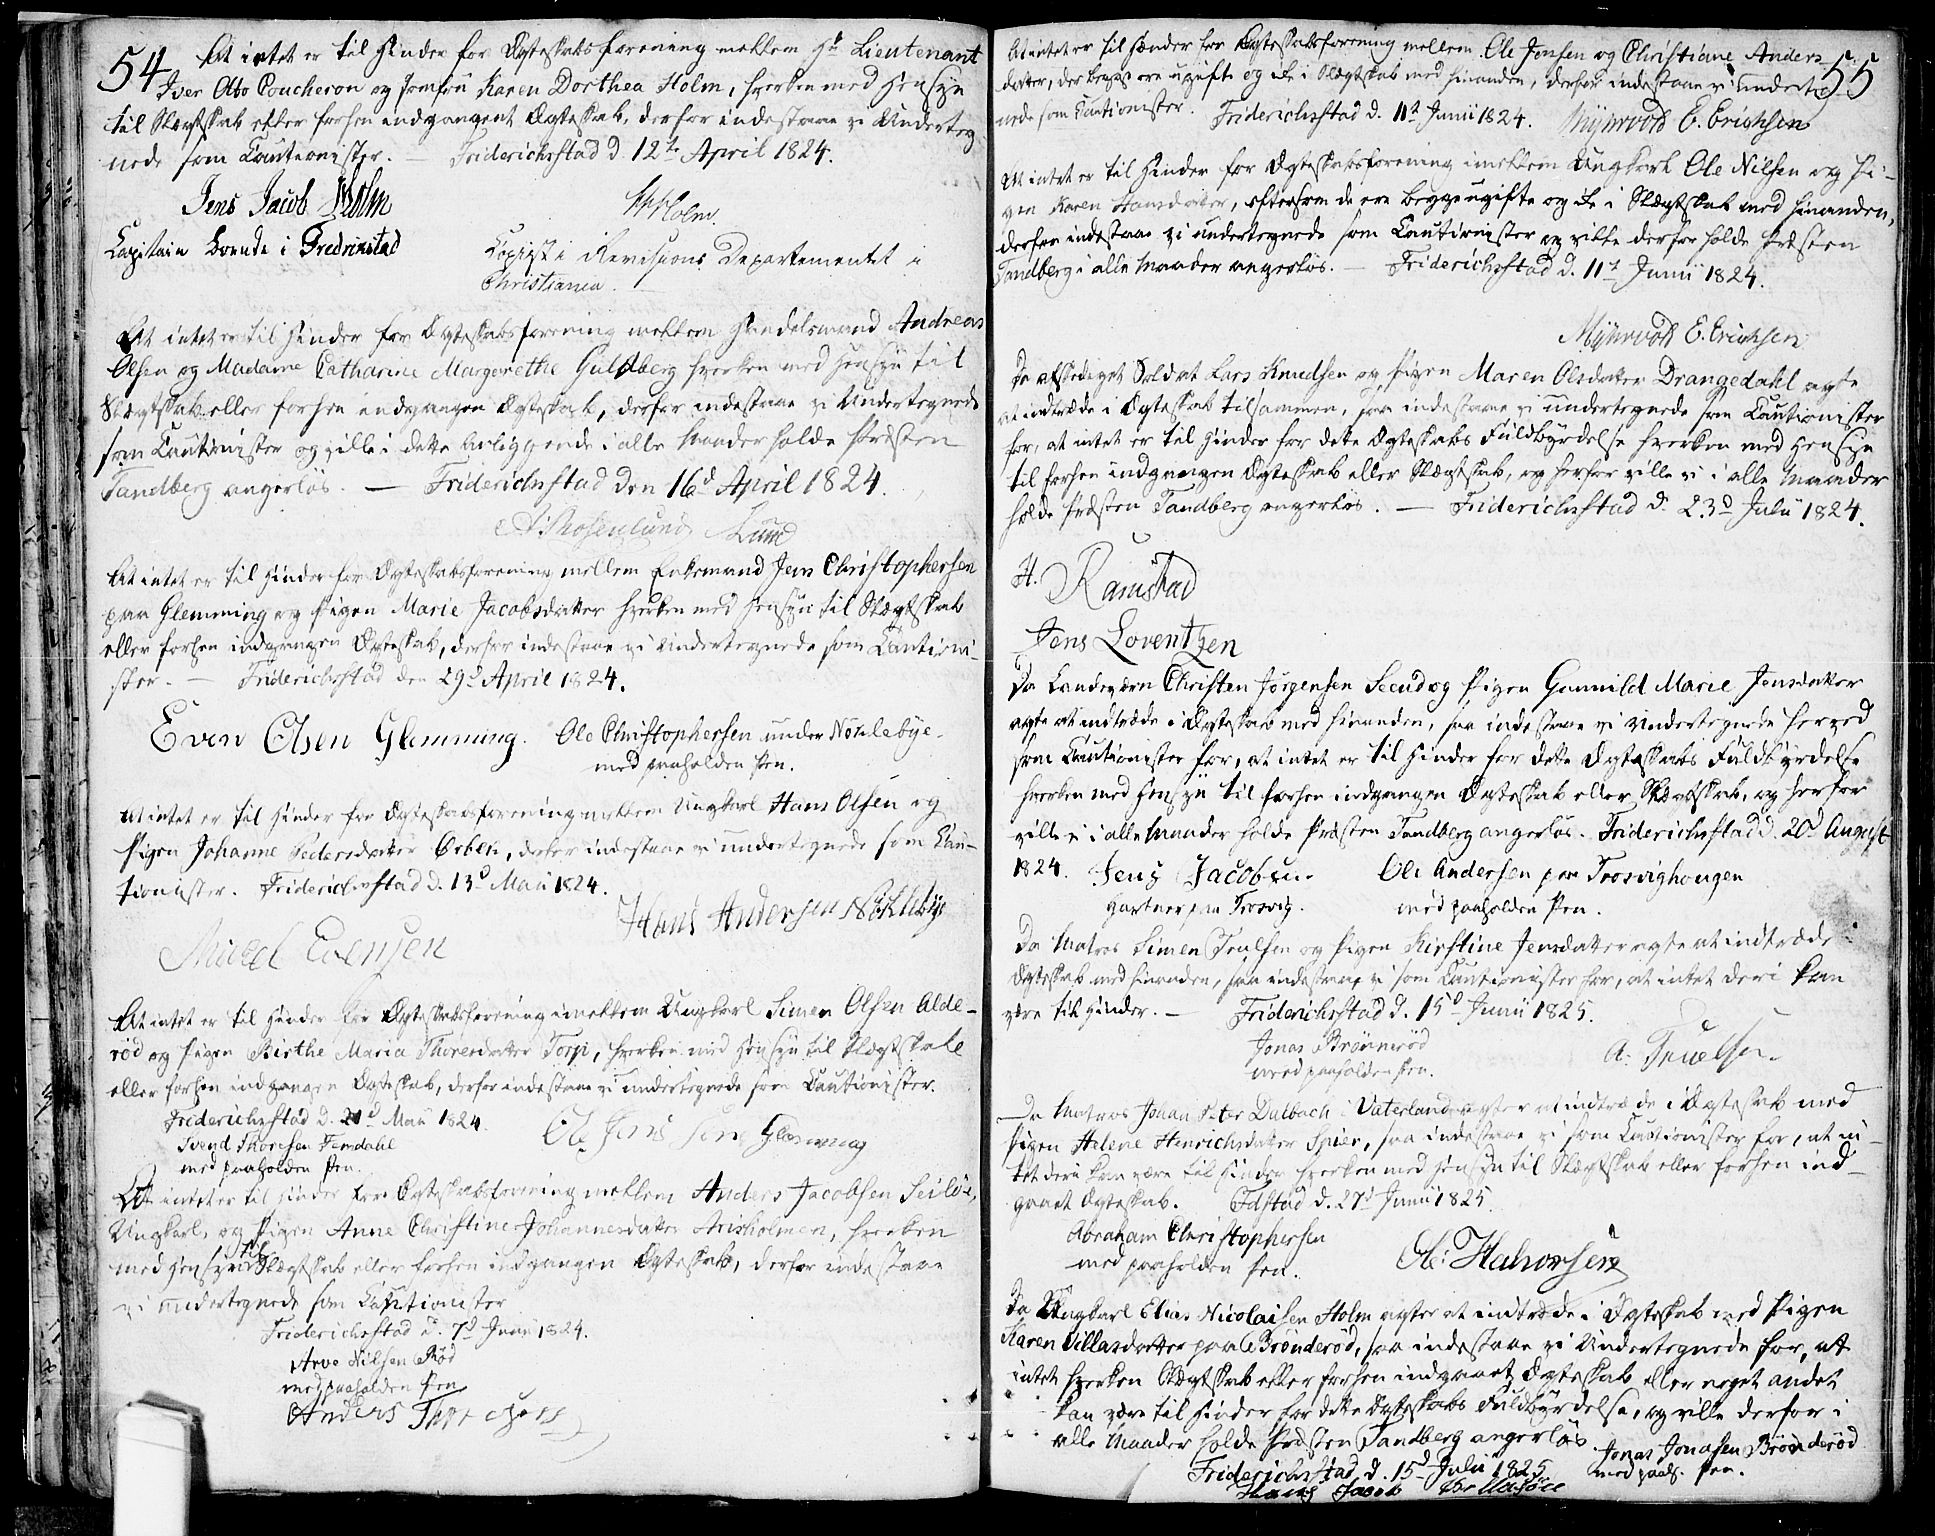 54
At intet er til Hinder for Ægteskabsforening mellem Hr Lieutenant
Iver Otto Coucheron og Jomfrü Karen Dorthea Holm, hverken med Hensÿn
til Slægtskab eller forhen indgangent Ægteskab, derfor indestaae vi Underteg-
nede som Cautionister. — Friderichstad d. 12te April 1824.
Jens Jacob Holm
Holm
Capitain boende i Fredrikstad
Copiist i Revisions Departementet i
Christiania.
At intet er til Hinder for Ægteskabsforening mellem Handelsmand Andreas
Olsen og Madame Catharine Margarethe Guldberg hverken med Hensÿn til
Slægtskab eller forhen indgangen Ægteskab, derfor indestaae vi Undertegnede
som Cautionister og ville i dette Anliggende i alle Maader holde Præsten
Tandberg angerløs — Friderichstad den 16d April 1824.
Lund
At intet er til Hinder for Ægteskabsforening mellem Enkemand Jens Christophersen
paa Glemming og Pigen Marie Jacobsdatter hverken med Hensÿn til Slægtskab
eller forhen indgangen Ægteskab, derfor indestaae vi Undertegnede som Cautioni-
ster. — Friderichstad den 29d April 1824.
Even Olsen Glemming. Ole Christophersen under Nøklebÿe.
med paaholden Pen.
At intet er til Hinder for Ægteskabsforening mellem Ungkarl Hans Olsen og
Pigen Johanne Pedersdatter Ørbek, derfor indestaae vi undertegnede som Cau-
tionister. Friderichstad d. 13d Maii 1824.
Hans Andersen Nøklebÿe
Evensen
At intet er til Hinder for Ægteskabsforening imellem Ungkarl Simen Olsen Alde-
rød og Pigen Birthe Maria Thoresdatter Torp, hverken med Hensÿn til Slægtskab
eller forhen indgangen Ægteskab, derfor indestaae vi undertegnede som Cautionister.
Friderichstad d. 21d Maii 1824.
Svend Thoresen Femdahl
med paaholden Pen.
Ole Jens Sen Glemming
At intet er til Hinder for Ægteskabsforening mellem Anders Jacobsen Seilöe,
Ungkarl, og Pigen Anne Christine Johannesdatter Arisholmen, hverken
med Hensÿn til Slægtskab eller forhen indgangen Ægteskab, derfor indestaae
vi undertegnede som Cautionister
Friderichstad d. 7d Junii 1824.
Arve Nilsen Rød
med paaholden Pen
Anders
55
At intet er til Hinder for Ægteskabsforening mellem Ole Jensen og Christiane Anders-
datter, der begge ere ugifte og ik i Slægtskab med hinanden, derfor indestaae vi underteg-
nede som Cautionister. Friderichstad d. 11te Junii 1824. Mÿhrvold E. Erichsen
At intet er til Hinder for Ægteskabsforening imellem Ungkarl Ole Nilsen og Pi-
gen Karen Hansdatter, eftersom de ere begge ugifte og ik i Slægtskab med hinanden,
derfor indestaae vi undertegnede som Cautionister og ville derfor holde Præsten
Tandberg i alle Maader angerløs. — Friderichstad d. 11t Junii 1824.
Mÿhrvold E. Erichsen
Da afskediget Soldat Lars Knudsen og Pigen Maren Olsdatter Drangedahl agte
at indtræde i Ægteskab tilsammen, saa indestaae vi undertegnede som Cautionister
for, at intet er til Hinder for dette Ægteskabs Fuldbÿrdelse hverken med Hensÿn
til forhen indgangen Ægteskab eller Slægtskab, og herfor ville vi i alle Maader
holde Præsten Tandberg angerløs. — Friderichstad d. 23d Julii 1824.
H. Ramstad
Jens Lorentzen
Da Landeværn Christen Jørgensen Seeud og Pigen Gunnild Marie Jensdatter
agte at indtræde i Ægteskab med hinanden, saa indestaae vi Undertegnede herved
som Cautionister for, at intet er til Hinder for dette Ægteskabs Fuldbÿrdelse
hverken med Hensÿn til forhen indgangen Ægteskab eller Slægtskab, og herfor
ville vi i alle Maader holde Præsten Tandberg angerløs. Friderichstad d. 20d August
1824. Jens Jacobsen Ole Andersen paa Trosvighougen
Gartner paa Trosvig. med paaholden Pen.
Da Matros Simen Trulsen og Pigen Kirstine Jensdatter agte at indtræde i
Ægteskab med hinanden, saa indestaae vi som Cautionister for, at intet deri kan
være til Hinder. — Friderichstad d. 15d Junii 1825.
Jonas Brønnerød
med paaholden Pen.
A. Truelsen
Da Matros Johan Peter Dalbach i Vaterland agter at indtræde i Ægteskab med
Pigen Helene Hinrichsdatter Spier, saa indestaae vi som Cautionister for, at in-
tet deri kan være til Hinder hverken med Hensÿn til Slægtskab eller forhen ind-
gaaet Ægteskab. Fdstad d. 27d Junii 1825.
Abraham Christophersen
med paaholden Pen.
Ole Halvorsen
Da Ungkarl Elias Nicolaisen Holm agter at indtræde i Ægteskab med Pigen
Karen Villasdatter paa Brønderød, saa indestaae vi Undertegnede for, at
intet hverken Slægtskab eller forhen indgaaet Ægteskab eller noget andet
kan være til Hinder for dette Ægteskabs Fuldbÿrdelse, og ville derfor i
alle Maader holde Præsten Tandberg angerløs.
Friderichstad d. 15d Julii 1825
Jonas Jonasen Brønderød
med paah. Pen.
Hans Jacob